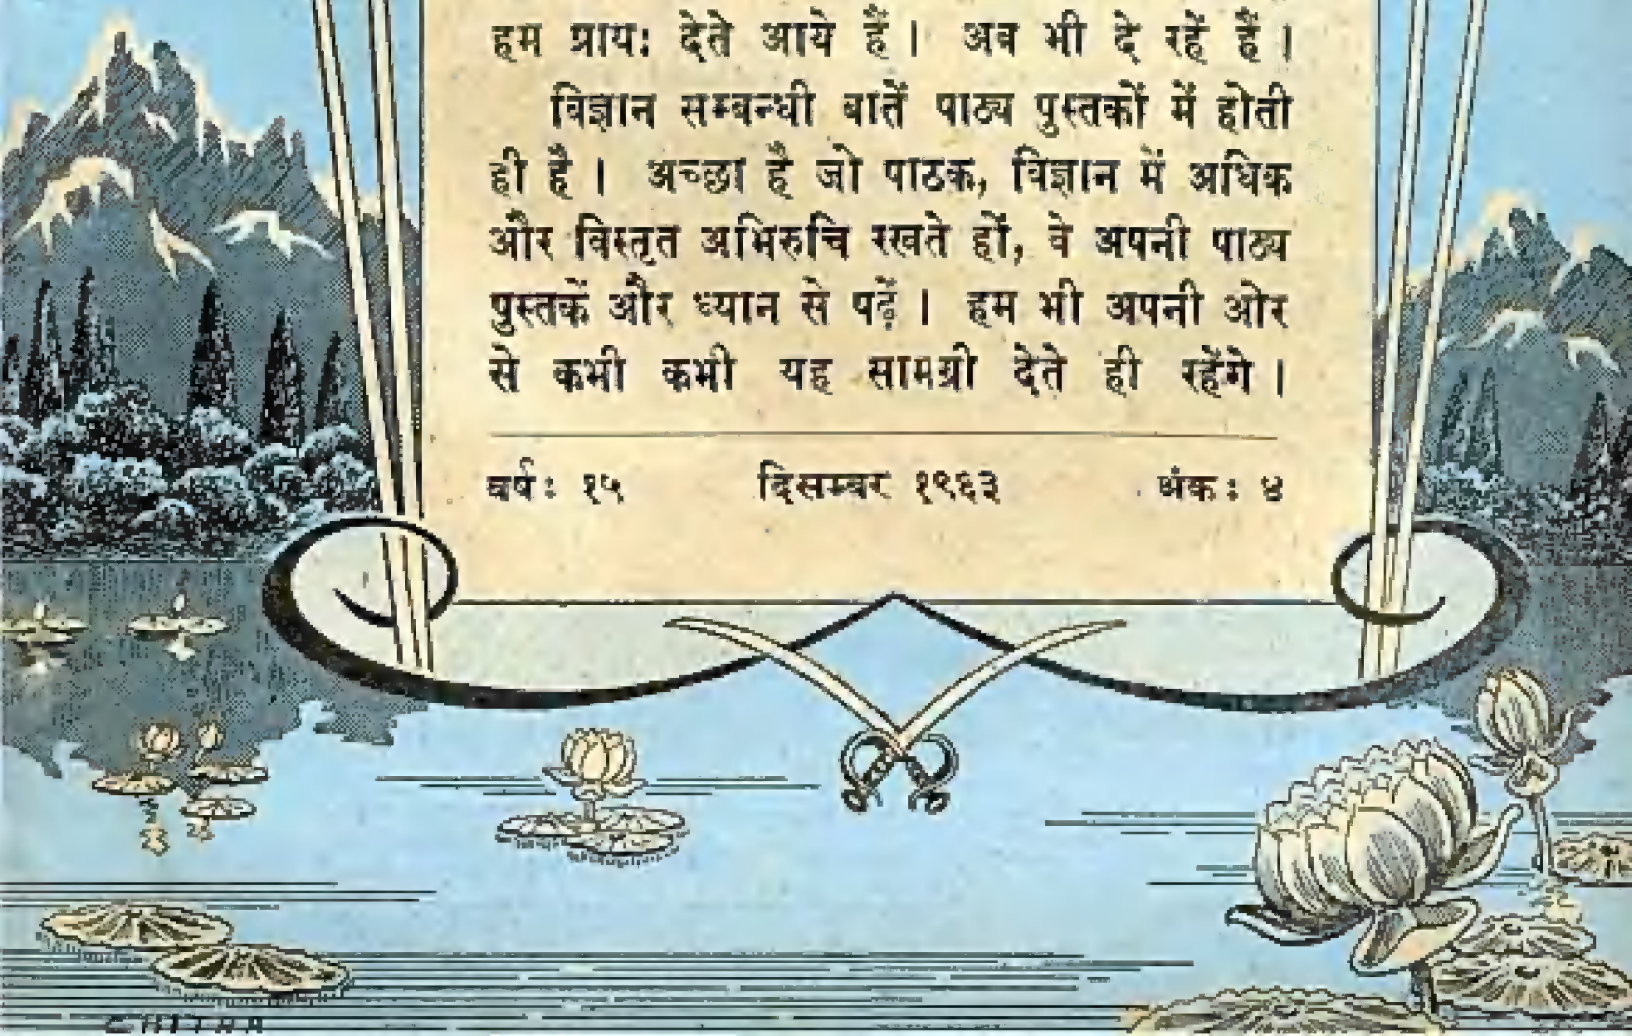 हम प्रायः देते आये हैं। अब भी दे रहें हैं।
विज्ञान सम्बन्धी बातें पाठ्य पुस्तकों में होती
ही है। अच्छा है जो पाठक, विज्ञान में अधिक
और विस्तृत अभिरुचि रखते हों, वे अपनी पाठ्य
पुस्तकें और ध्यान से पढ़ें। हम भी अपनी ओर
से कभी कभी यह सामग्री देते ही रहेंगे।
वर्ष: १५ दिसम्बर १९६३ अंक: ४
CHITRA